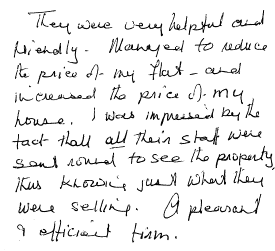 They were very helpful and
friendly. Managed to reduce
the price of my flat - and
increased the price of my
house. I was impressed by the
fact that all their staff were
sent round to see the property,
thus knowing just what they
were selling. A pleasant
& efficient firm.